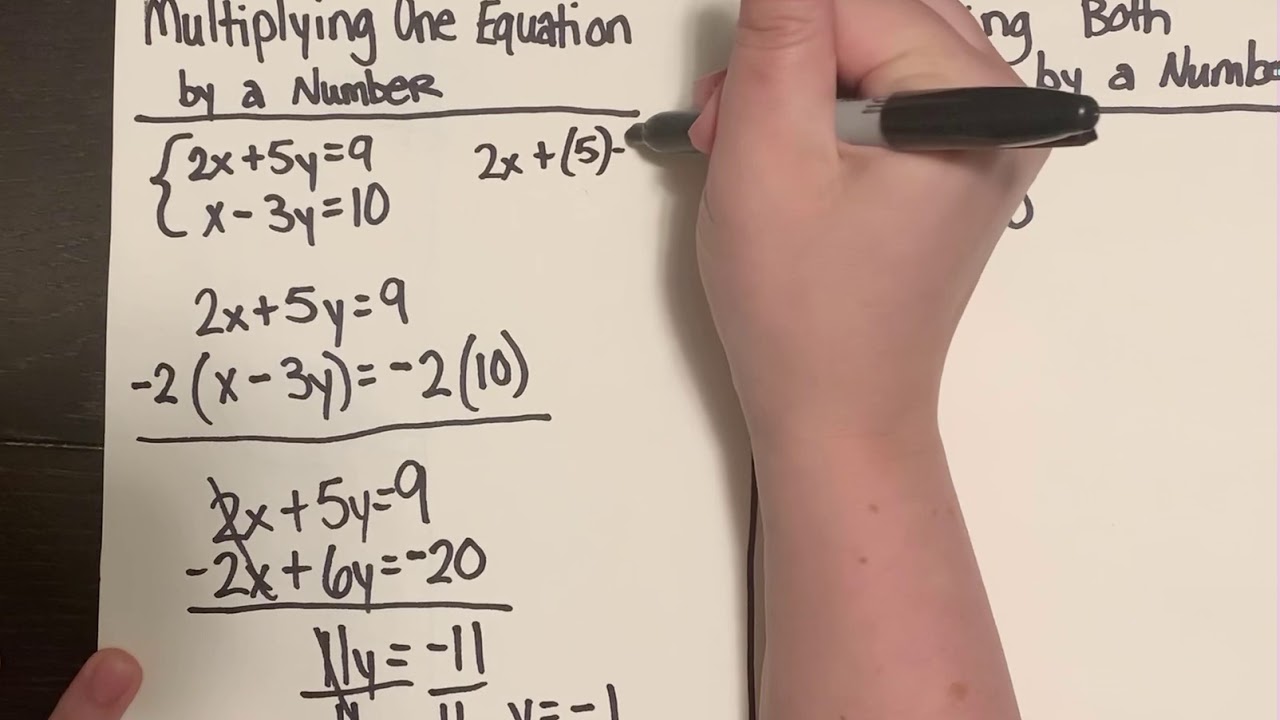 Multiplying One Equation
by a Number
2x+5y=9
x-3y=10
2x+5y=9
-2(x-3y)=-2(10)
2x+5y=9
-2x+6y=-20
11y=-11
11
y=-1
2x+(5)-
Both
by a